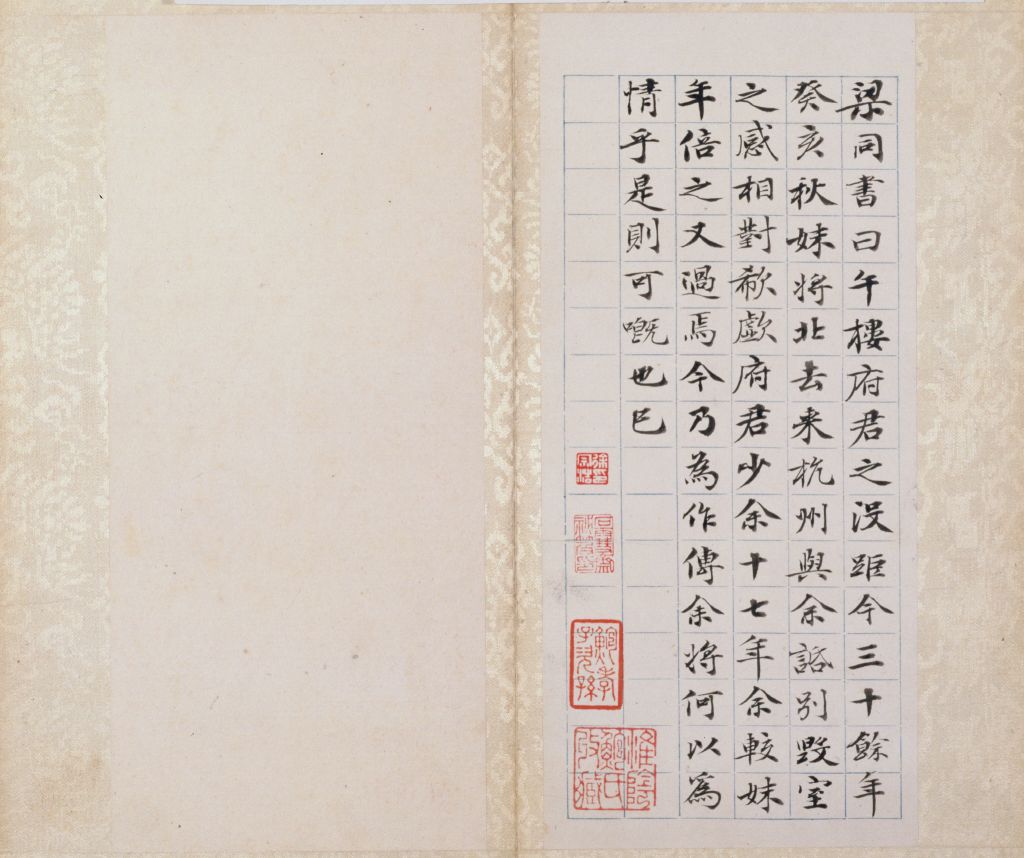 梁同書曰午樓府君之没距今三十餘年
癸亥秋妹将北去来杭州與余話别毀室
之感相對欷歔府君少余十七年余較妹
年倍之又過焉今乃為作傳余將何以為
情乎是則可嘅也已
淮陰鮑氏收藏